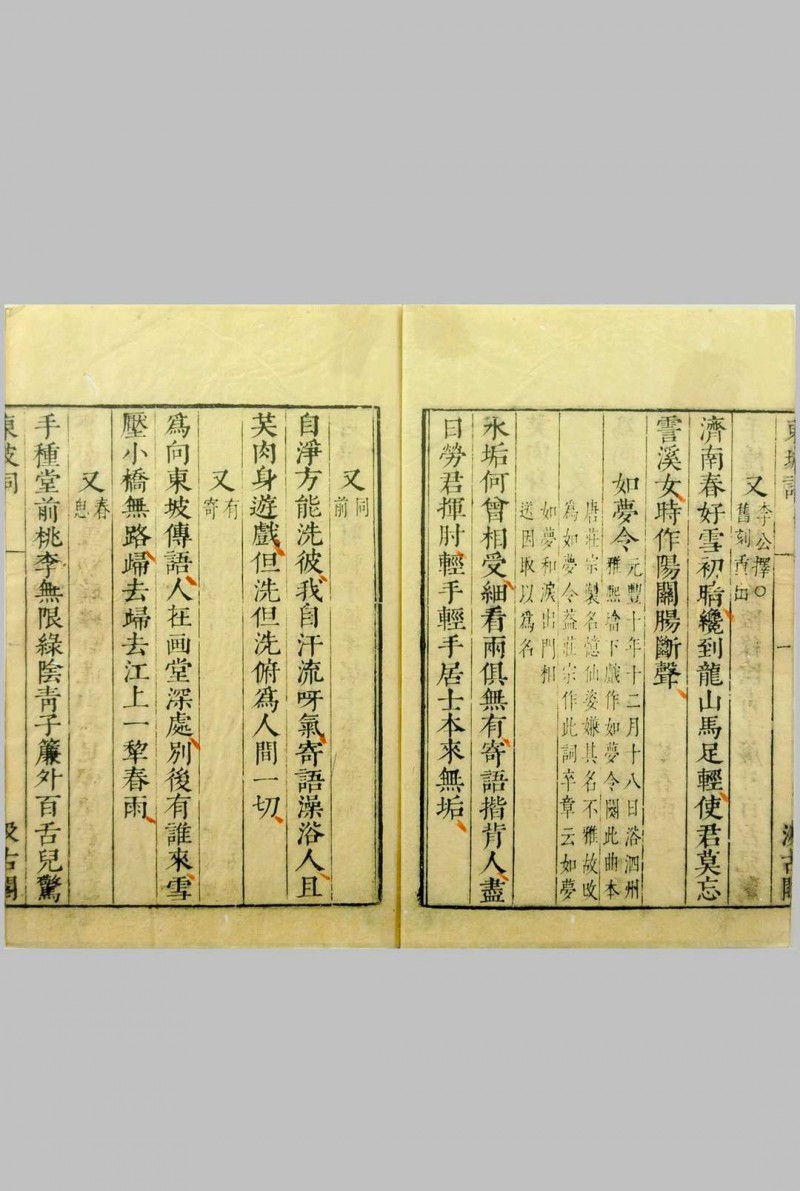 又李公擇○
舊刻
濟南春好雪初晴纔到龍山馬足輕使君莫忘
霅溪女時作陽關腸斷聲
如夢令元豐十年十二月十八日浴泗州
雍熙塔下戲作如夢令闋此曲本
唐莊宗製名憶仙姿嫌其名不雅故改
為如夢令葢莊宗作此詞卒章云如夢
如夢和淚出門相
送因取以為名
水垢何曾相受細看兩俱無有寄語揩背人盡
日勞君揮肘輕手輕手居士本來無垢
又同
前
自淨方能洗彼我自汗流呀氣寄語澡浴人且
共肉身遊戲但洗但洗俯為人間一切
又有
寄
為向東坡傳語人在画堂深處別後有誰來雪
壓小橋無路歸去歸去江上一犂春雨
又春
思
手種堂前桃李無限綠陰靑子簾外百舌兒驚
東坡詞
汲古閣